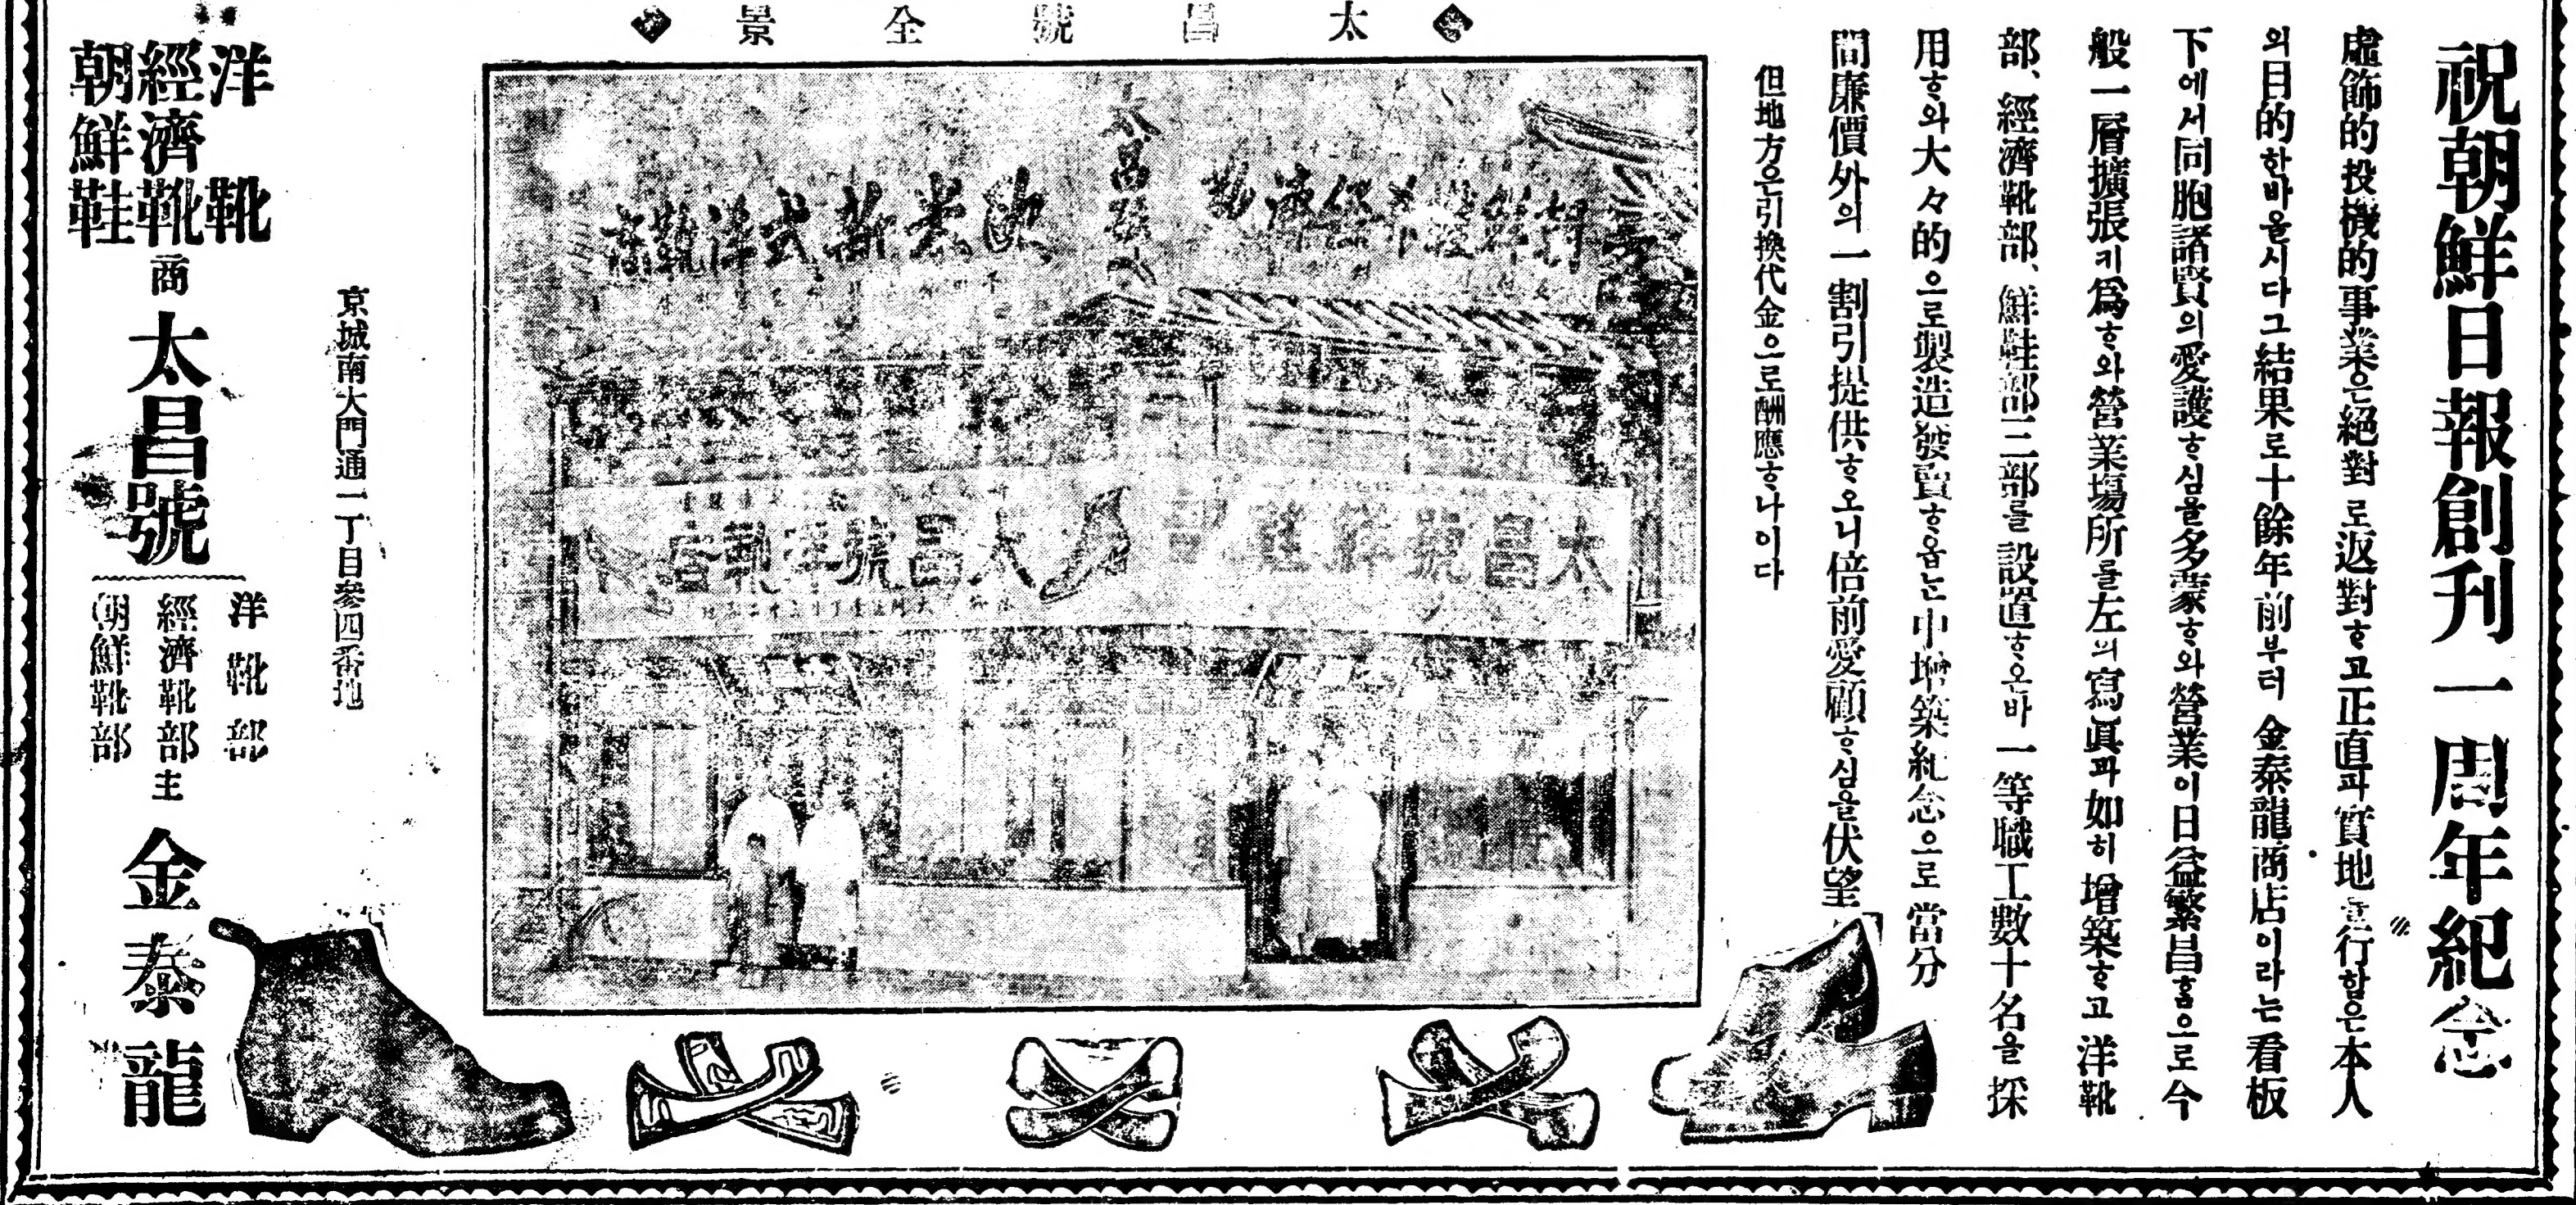 祝朝鮮日報創刊一周年紀念
虛飾的投機的事業은絕對로返對ᄒᆞ고正直과實地를行함은本人
의目的한바올시다그結果로十餘年前부터金泰龍商店이라는看板
下에서同胞諸賢의愛護ᄒᆞ심을多蒙ᄒᆞ와營業이日益繁昌홈으로今
般一層擴張키爲ᄒᆞ와營業場所를左의寫眞과如히增築ᄒᆞ고洋靴
部、經濟靴部、鮮鞋部三部를設置ᄒᆞ온바一等職工數十名을採
用ᄒᆞ와大々的으로製造發賣ᄒᆞ옵는中增築紀念으로當分
間廉價外의一割引提供ᄒᆞ오니倍前愛顧ᄒᆞ심을伏望
但地方은引換代金으로酬應ᄒᆞ나이다
太昌號全景
太昌號
太昌號洋靴
京城南大門通一丁目參四番地
洋靴
經濟靴
朝鮮鞋
商
太昌號
洋靴部
經濟靴部
朝鮮靴部
主
金泰龍